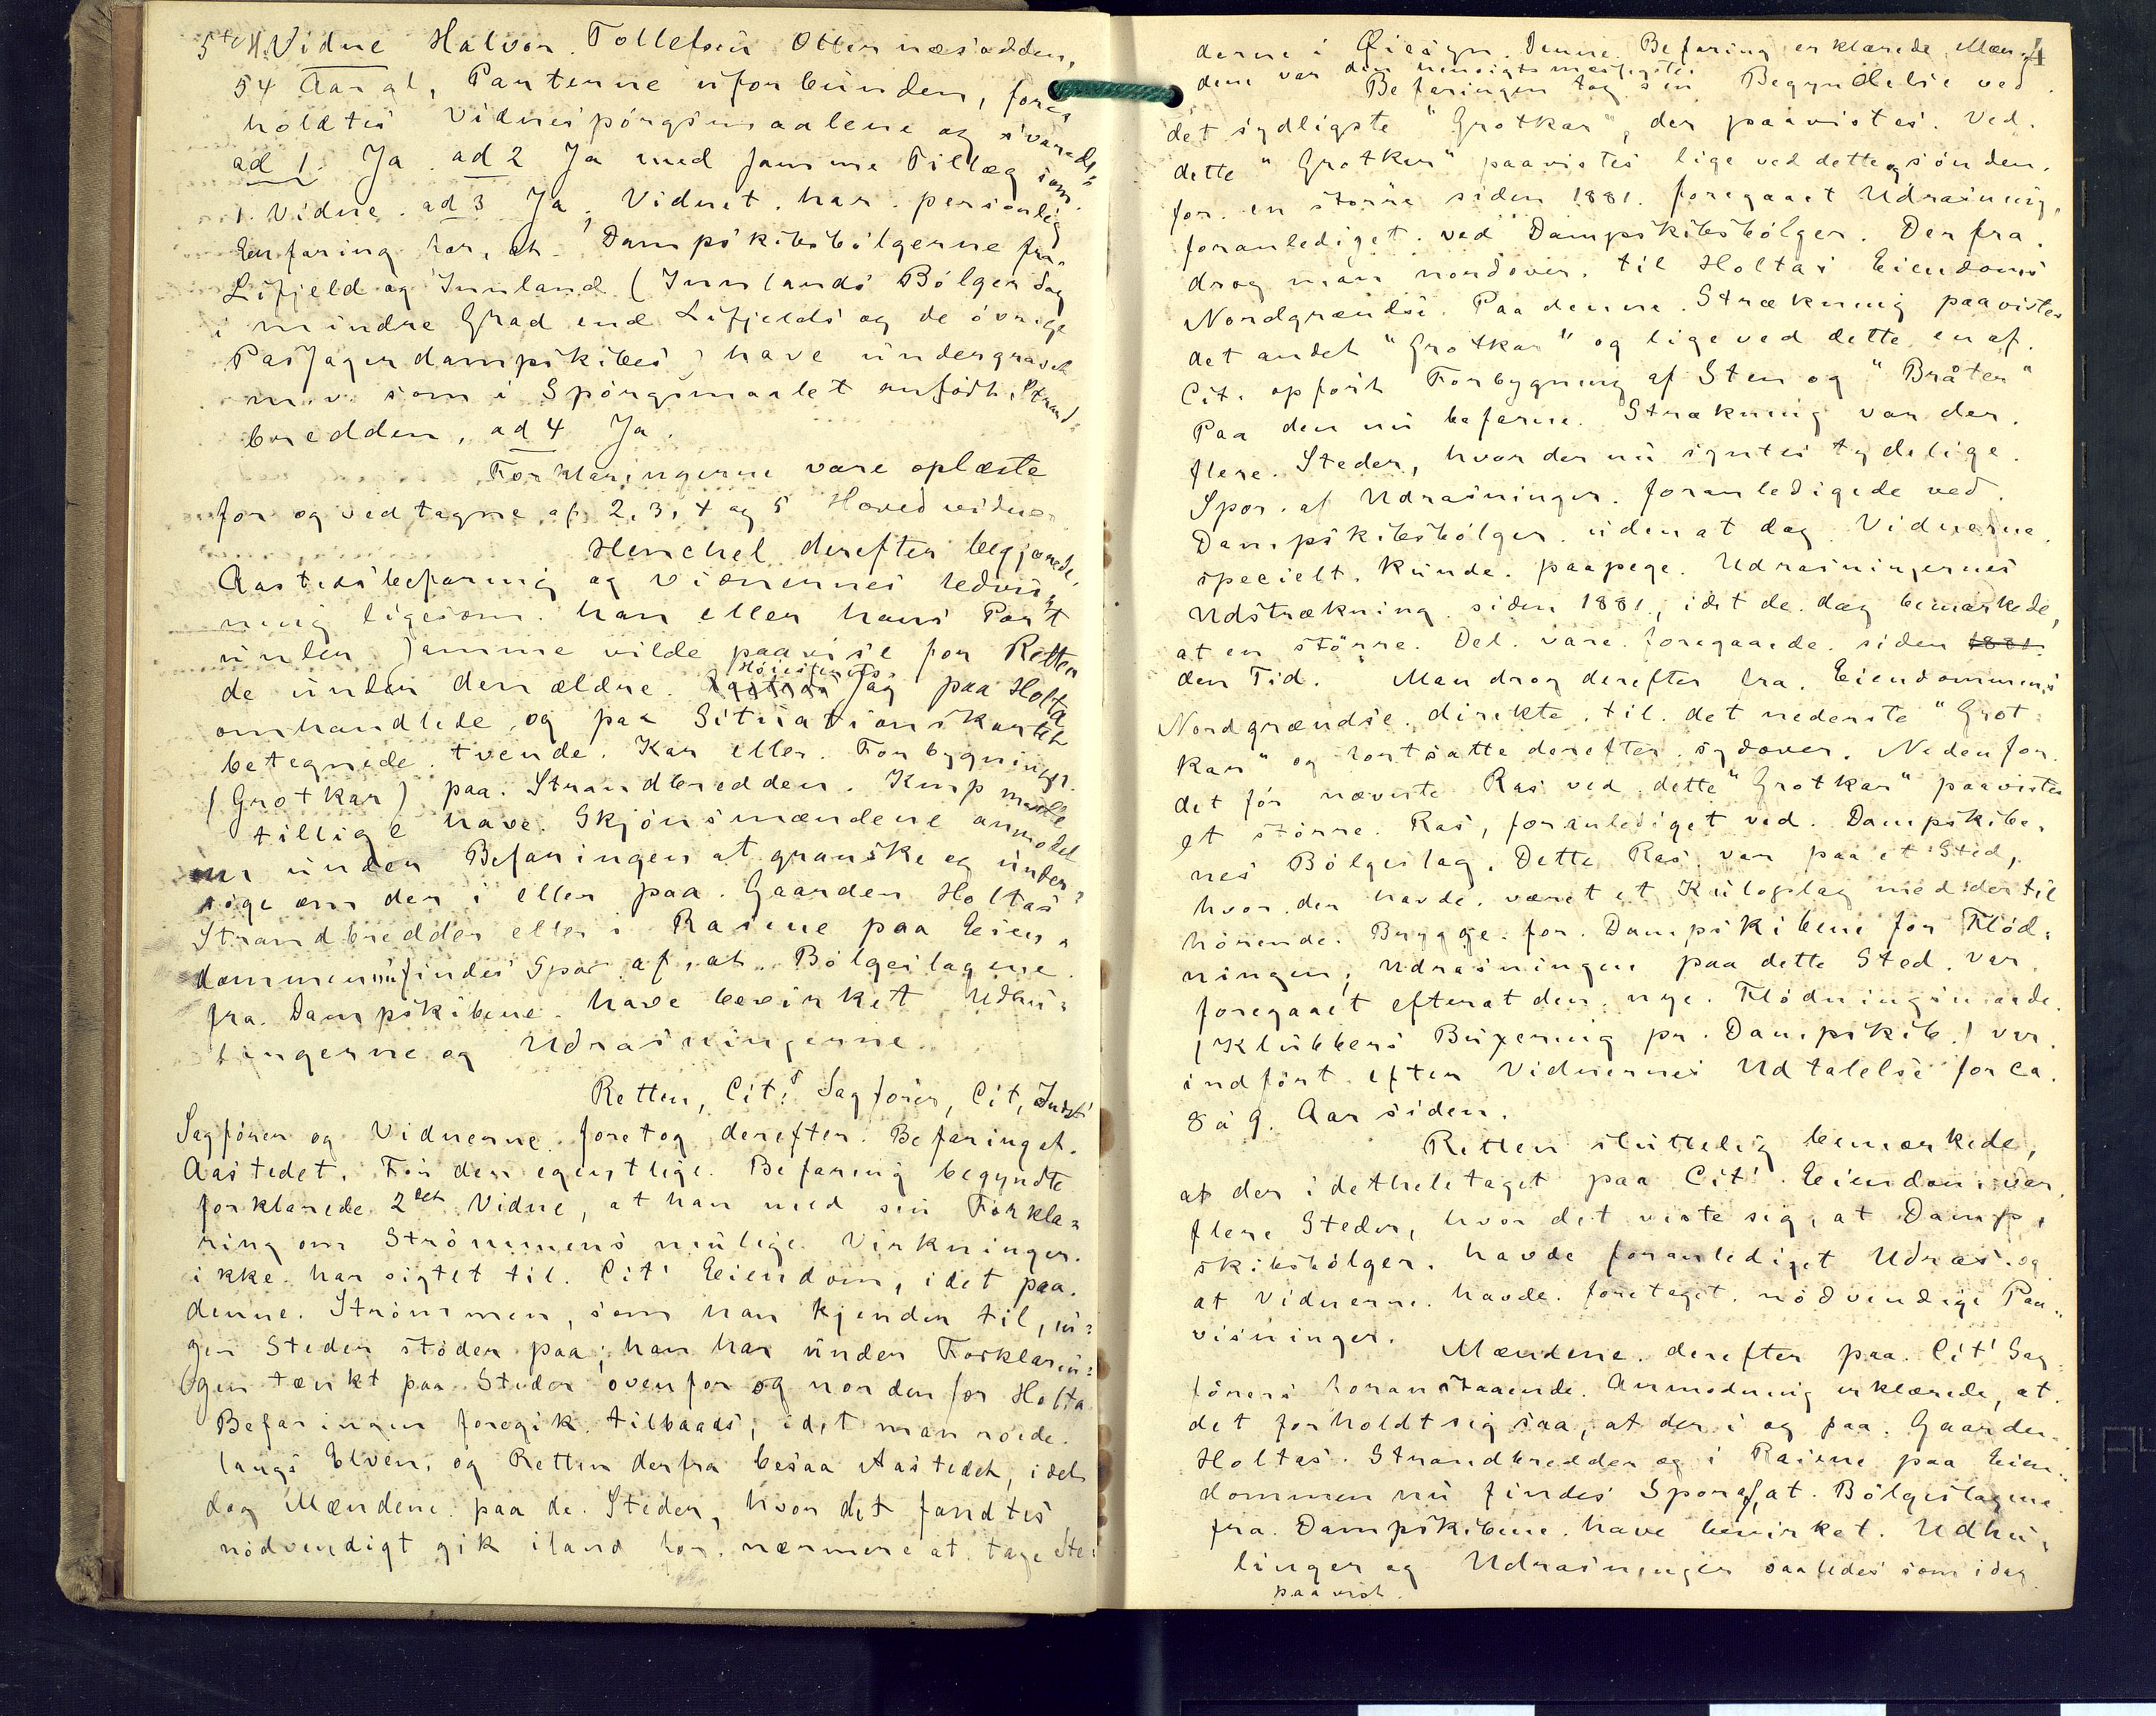 5te H. Vidne Halvor Tollefsen Otternæsodden,
54 Aar gl, Parterne uforbunden, fore=
holdtes Vidnespörgsmaalene og svarede
ad 1. Ja. ad 2 Ja med samme Tillæg som
1. Vidne. ad 3 Ja, Vidnet har personlig
Erfaring for, at Dampskibsbölgerne fra
Lifjeld og Innland (Innlands Bölger dog
i mindre Grad end Lifjelds og de övrige
Passagerdampskibes) have undergravet
m.v. som i Spörgsmaalet anfört, Strand=
bredden, ad 4 Ja.
Forklaringerne vare oplæste
for og vedtagne af 2, 3, 4 og 5 Hovedvidner
Henchel derefter begjærede
Aastedsbefaring og Vidnernes
ning ligesom han eller hans Part
under samme vilde paavise for Retten
de under den ældre Höiesterets Sag paa Holta
omhandlede og paa Situationskartet
betegnede tvende Kar eller Forbygninger
(Grotkar) paa Strandbredden. Kmp maatte
tillige have Skjönsmændene anmodet
om under Befaringen at granske og under=
söge om der i eller paa Gaarden Holtas
Strandbredder eller i Rasene paa Eien=
dommen nu findes Spor af, at Bölgeslagene
fra Dampskibene have bevirket Udhu=
lingerne og Udrasningerne.
Retten, Cit.s Sagförer, Cit, Indst.
Sagförer og Vidnerne foretog derefter Befaring af
Aastedet. Før den egentlige Befaring begyndte
forklarede 2det Vidne, at han med sin Forkla=
ring om Strömmens mulige Virkninger
ikke har sigtet til Cit.s Eiendom, idet paa
denne Strömmen, som han kjender til, in=
gen Steder stöder paa; han har under Forklarin=
gen tænkt paa Steder ovenfor og nordenfor Holta
Befaringen foregik tilbaads, idet man roede
langs Elven, og Retten derfra besaa Aastedet, idet
dog Mændene paa de Steder, hvor det fandtes
nödvendigt gik iland for nærmere at tage Ste=
derne i Øiesyn. Denne Befaring erklærede Mæn= 4
dene var den hensigtsmæssigste.
Befaringen tog sin Begyndelse ved
det sydligste "Grotkar", der paavistes. Ved
dette "Grotkar" paavistes lige ved dette og sönden=
for en större siden 1881 foregaaet Udrasning,
foranlediget ved Dampskibsbölger. Derfra
drog man nordover til Holtas Eiendoms
Nordgrændse. Paa denne Strækning paavistes
det andet "Grotkar" og lige ved dette en af
Cit. opfört Forbygning af Sten og "Bråter"
Paa den nu befarne Strækning var der
flere Steder, hvor der nu syntes tydelige
Spor af Udrasninger foranledigede ved
Dampskibsbölger uden at dog Vidnerne
specielt kunde paapege Udrasningernes
Udstrækning siden 1881, idet de dog bemærkede,
at en större Del vare foregaaede siden 1881
den Tid. Man drog derefter fra Eiendommens
Nordgrændse direkte til det nederste "Grot=
kar" og fortsatte derefter sydover. Nedenfor
det för nævnte Ras ved dette "Grotkar" paavistes
et större Ras, foranlediget ved Dampskibe=
nes Bölgeslag. Dette Ras var paa et Sted,
hvor der havde været et Kuloplag med dertil
hörende Brygge for Dampskibene for Flöd=
ningen; Udrasningen paa dette Sted var
foregaaet efterat den nye Flödningsmaade
(Klubbers Buxering pr. Dampskib) var
indfört efter Vidnernes Udtalelse for ca.
8 à 9 Aar siden.
Retten sluttelig bemærkede,
at der i detheletaget paa Cit.s Eiendom var
flere Steder, hvor det viste sig, at Damp=
skibsbölger havde foranlediget Udras og
at Vidnerne havde foretaget nödvendige Paa=
visninger.
Mændene derefter paa Cit.s Sag=
förers foranstaaende Anmodning erklærede, at
det forholdt sig saa, at der i og paa Gaarden
Holtas Strandbredder og i Rasene paa Eien=
dommen nu findes Spor af, at Bölgeslagene
fra Dampskibene have bevirket Udhu=
linger og Udrasninger saaledes som idag
paavist.